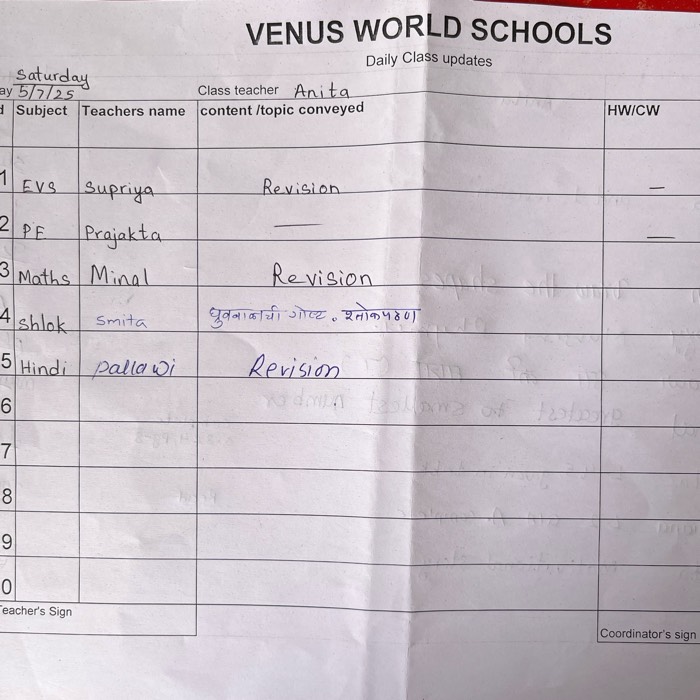 VENUS WORLD SCHOOLS
Daily Class updates
Saturday
ay 5/7/25 Class teacher Anita
d Subject Teachers name content /topic conveyed HW/CW
1 EVS Supriya Revision —
2 PE Prajakta — —
3 Maths Minal Revision
4 shlok Smita गोष्ट. श्लोक पठण
5 Hindi pallawi Revision
6
7
8
9
0
Teacher's Sign
Coordinator's sign